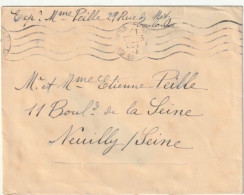 Exp: Mme Peille, 29 Rue
Mr et Mme Etienne Peille
11 Boul.d de la Seine
Neuilly s/ Seine